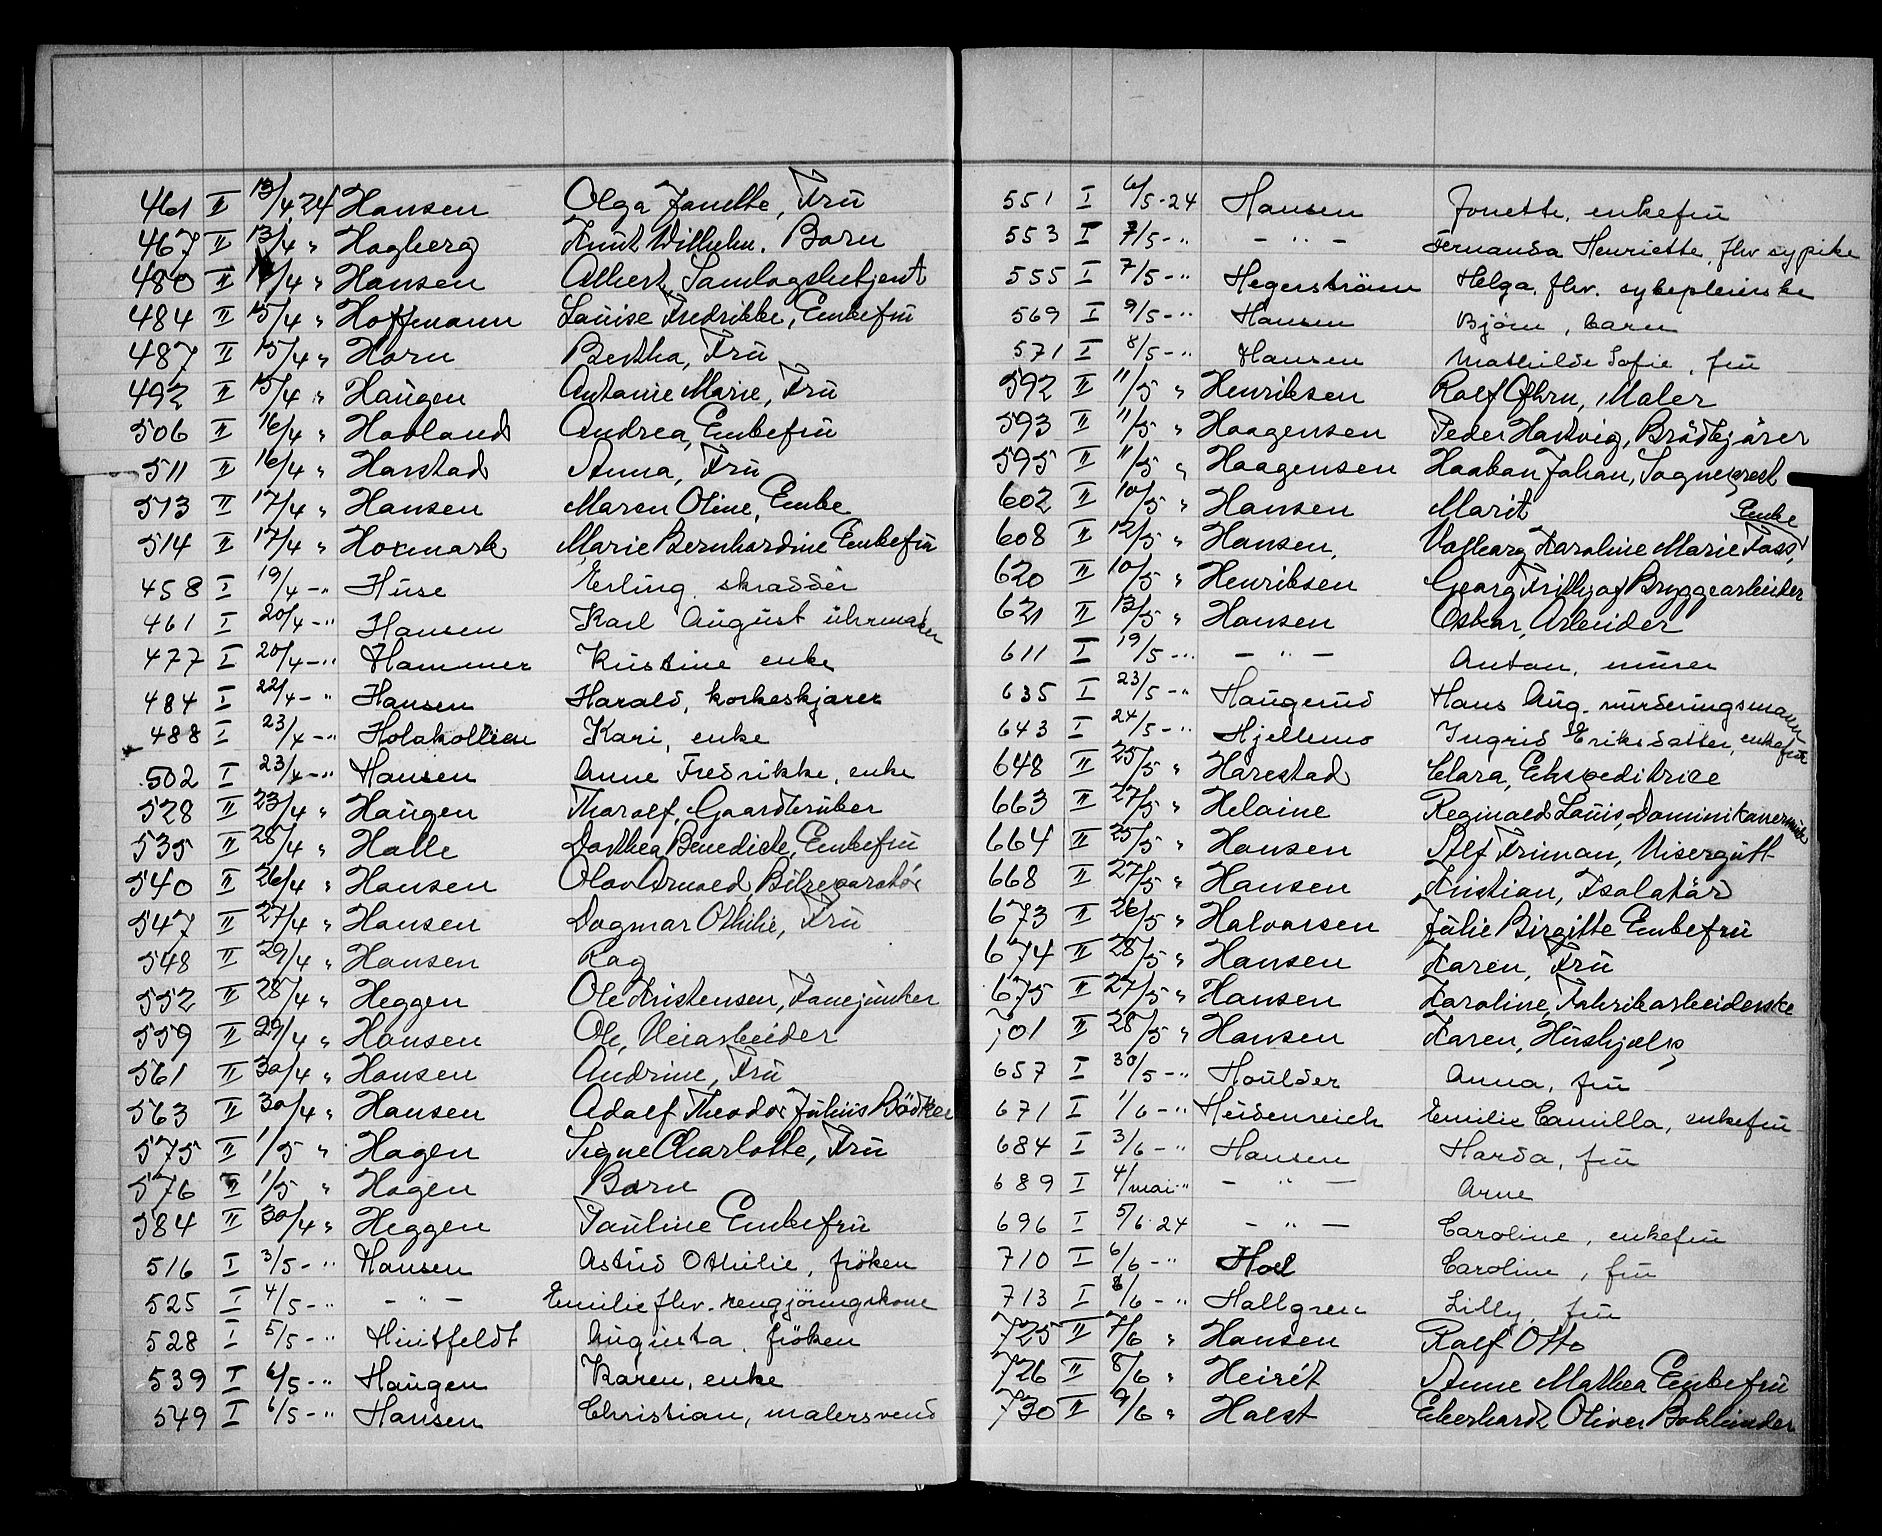 461 II 13/4 24 Hansen Olga Janette, Fru
467 II 13/4 " Hagberg Knut Wilhelm. Barn
480 II /4 " Hansen Albert, Samlagsbetjent
484 II 15/4 " Hoffmann Lauise Fredrikke, Enkefru
487 II 15/4 " Horn Bertha, Fru
492 II 15/4 " Haugen Antonie Marie, Fru
506 II 16/4 " Havland Andrea, Enkefru
511 II 16/4 " Harstad Anna, Fru
513 II 17/4 " Hansen Maren Oline, Enke
514 II 17/4 " Hoxmark Marie Bernhardine Enkefru
458 I 19/4 - " Huse Erling, skrædder
461 I 20/4 - " Hansen Karl August uhrmaker
477 I 20/4 - " Hammer Kristine enke
484 I 22/4 - " Hansen Harald, korkeskjærer
488 I 23/4 - " Holakollien Kari, enke
502 I 23/4 - " Hansen Anne Fredrikke, enke
528 II 23/4 " Haugen Tharalf, Gaardbruker
535 II 28/4 " Halle Dorthea Benedicte, Enkefru
540 II 26/4 " Hansen Olav Arnold, Bilreparatör
547 II 27/4 " Hansen Dagmar Othilie, Fru
548 II 29/4 " Hansen Rag
552 II 28/4 " Heggen Ole Kristensen, Fanejunker
559 II 29/4 " Hansen Ole, Veiarbeider
561 II 30/4 " Hansen Andrine, Fru
563 II 30/4 " Hansen Adolf Theodor Julius Bödker
575 II 1/5 " Hagen Signe Charlotte, Fru
576 II 1/5 " Hagen Barn
584 II 30/4 " Heggen Pauline Enkefru
516 I 3/5 - " Hansen Astrid Othilie, fröken
525 I 4/5 - " - " - Emilie fhv. rengjöringskone
528 I 5/5 - " Huitfeldt Augusta, fröken
539 I 6/5 - " Haugen Karen, enke
549 I 6/5 - " Hansen Christian, malersvend
551 I 6/5 - 24 Hansen Jonette, enkefru
553 I 7/5 - " - " - Fernanda Henriette, fhv sypike
555 I 7/5 - " Hegerström Helga, fhv. sykepleierske
569 I 9/5 - " Hansen Bjørn, barn
571 I 8/5 - " Hansen Mathilde Sofie, fru
592 II 11/5 " Henriksen Rolf Maler
593 II 11/5 " Haagensen Peder Hartvig, Brödkjörer
595 II 11/5 " Haagensen Haakon Johan, Sogneprest
602 II 10/5 " Hansen Marit
608 II 12/5 " Hansen, Valborg Karoline Marie Foss, Enke
620 II 10/5 " Henriksen Georg Frithjof Bryggearbeider
621 II 13/5 " Hansen Oskar, Arbeider
611 I 19/5 - " - " - Anton, murer
635 I 23/5 - " Haugerud Hans Aug. vurderingsmann
643 I 24/5 - " Hjellemo Ingrid Eriksdatter, enkefru
648 II 25/5 " Harestad Clara, Ekspeditrice
663 II 27/5 " Helaine Reginald Louis, Dominikanermunk
664 II 25/5 " Hansen Alf Friman, Visergutt
668 II 27/5 " Hansen Kristian, Isolatör
673 II 26/5 " Halvorsen Julie Birgitte Enkefru
674 II 28/5 " Hansen Karen, Fru
675 II 27/5 " Hansen Karoline, Fabrikarbeiderske
701 II 28/5 " Hansen Karen, Hushjælp
657 I 30/5 - " Houlder Anna, fru
671 I 1/6 - " Heidenreich Emilie Camilla, enkefru
684 I 3/6 - " Hansen Harda, fru
689 I 4/mai " - " - Arne
696 I 5/6 24 - " - Caroline, enkefru
710 I 6/6 - " Hoel Caroline, fru
713 I 8/6 - " Hallgren Lilly, fru
725 II 7/6 " Hansen Ralf Otto
726 II 8/6 " Heirét Anne Mathea Enkefru
730 II 9/6 " Holst Eberhardt Oliver Bokbinder